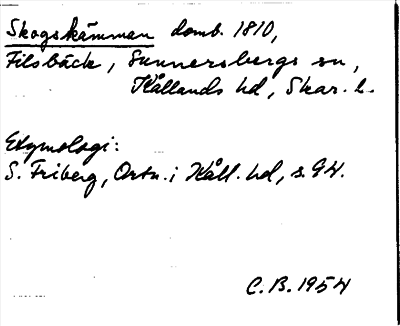 Skogskämman domb. 1810,
Filsbäck, Sunnersbergs sn,
Kållands hd, Skar. l.
Etymologi:
S. Friberg, Ortn. i Kåll. hd, s. 94.
C.B. 1954